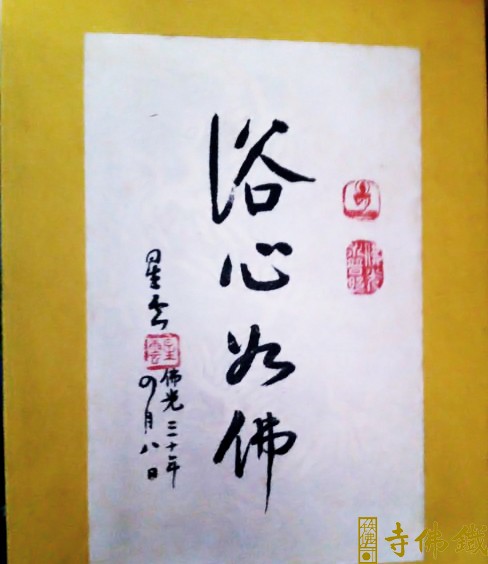 浴心如佛
星云
星雲
佛光三十年
四月八日
鐵佛寺